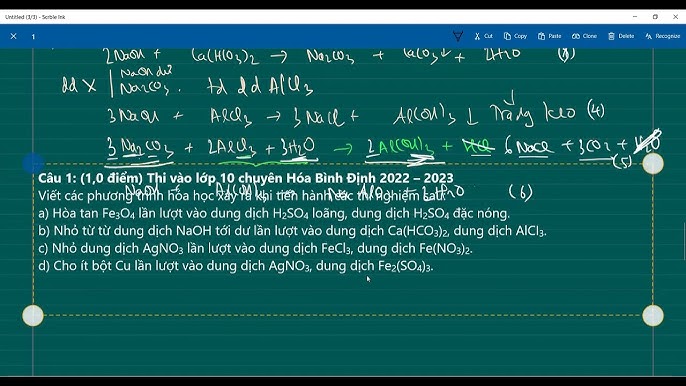 Untitled (3/3) - Scrble Ink
1 Cut Copy Paste Clone Delete Recognize
2NaOH + Ca(HCO3)2 → Na2CO3 + CaCO3↓ + 2H2O
dd X NaOH dư
Na2CO3 td dd AlCl3
3NaOH + AlCl3 → 3NaCl + Al(OH)3 ↓ Trắng keo (4)
3Na2CO3 + 2AlCl3 + 3H2O → 2Al(OH)3 + 6NaCl + 3CO2 +
(5)
Câu 1: (1,0 điểm) Thi vào lớp 10 chuyên Hóa Bình Định 2022 – 2023
NaOH + Al(OH)3 → (6)
Viết các phương trình hóa học xảy ra khi tiến hành các thí nghiệm sau:
a) Hòa tan Fe3O4 lần lượt vào dung dịch H2SO4 loãng, dung dịch H2SO4 đặc nóng.
b) Nhỏ từ từ dung dịch NaOH tới dư lần lượt vào dung dịch Ca(HCO3)2, dung dịch AlCl3.
c) Nhỏ dung dịch AgNO3 lần lượt vào dung dịch FeCl3, dung dịch Fe(NO3)2.
d) Cho ít bột Cu lần lượt vào dung dịch AgNO3, dung dịch Fe2(SO4)3.